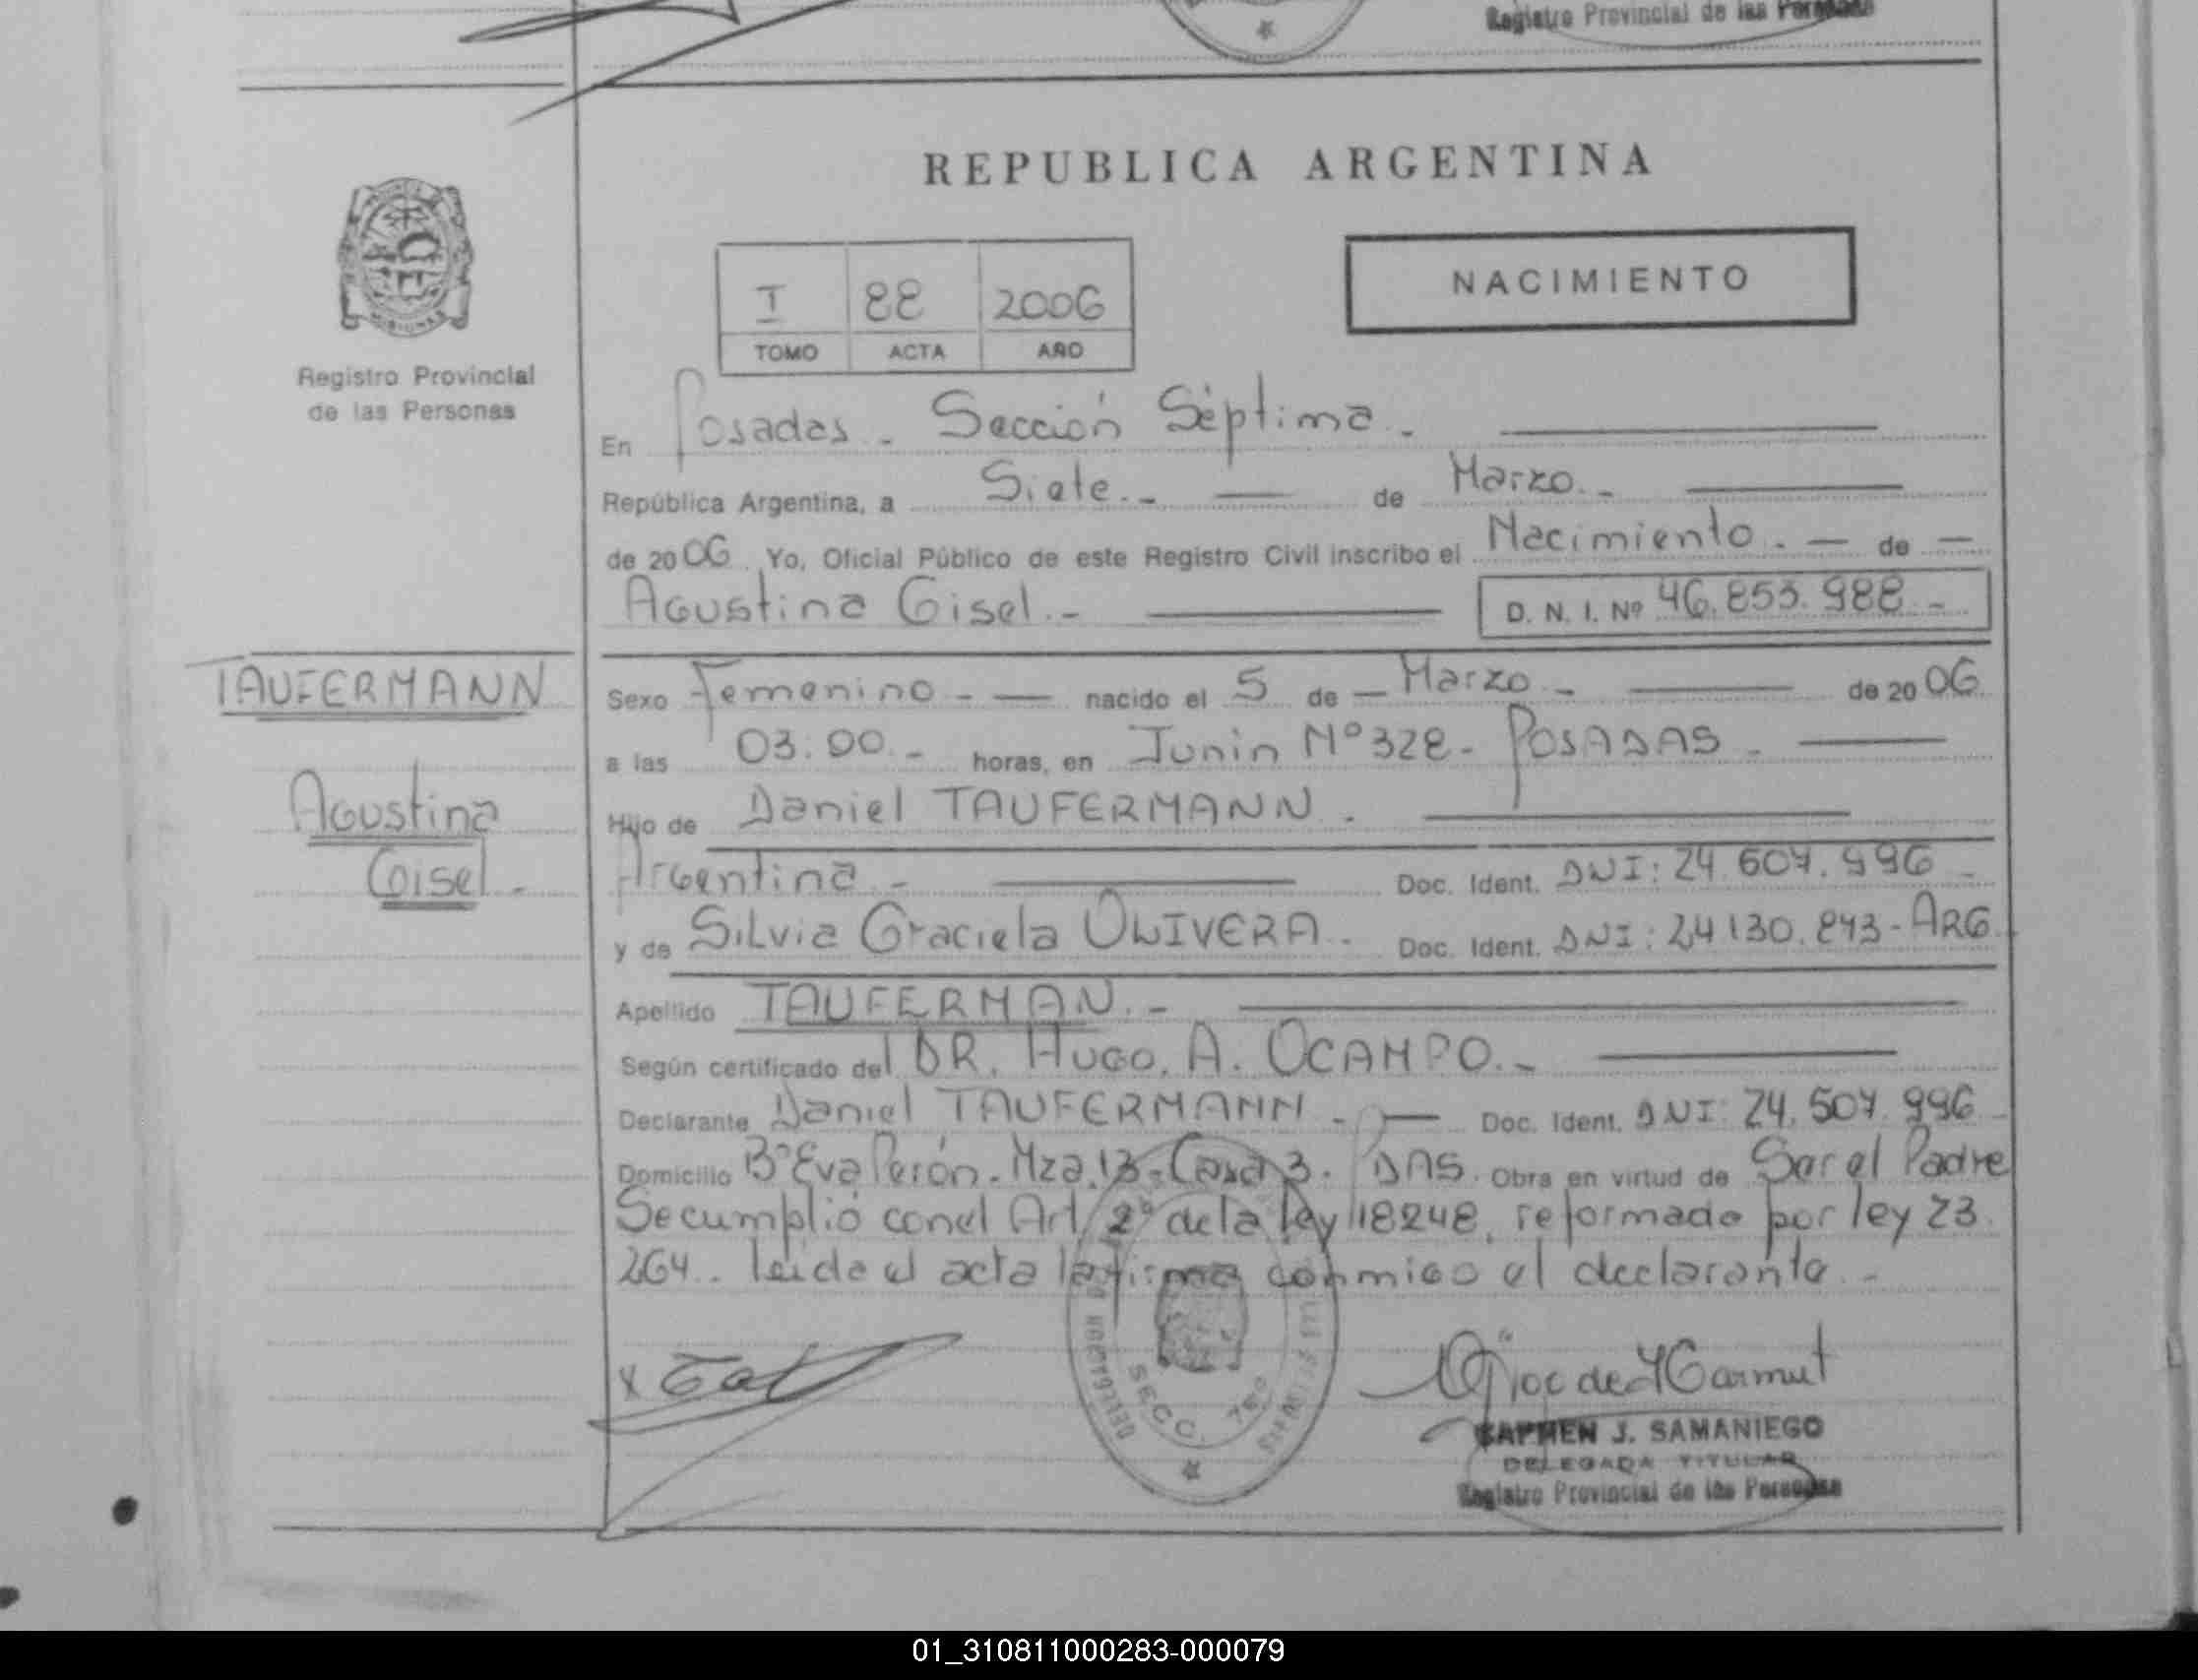 Registro Provincial de las Personas
REPUBLICA ARGENTINA
MISIONES
Registro Provincial
de las Personas
I 88 2006
TOMO ACTA AÑO
NACIMIENTO
En Posadas - Sección Séptima.
República Argentina, a Siete.- de Marzo.-
de 2006 Yo, Oficial Público de este Registro Civil inscribo el Nacimiento. - de -
Agustina Gisel.- D. N. I. Nº 46.853.988 -
TAUFERMANN
Agustina
Gisel -
Sexo Femenino - nacido el 5 de - Marzo - de 2006
a las 03:00.- horas, en Junin Nº 328 - POSADAS -
Hijo de Daniel TAUFERMANN.
Argentina - Doc. Ident. DNI: 24.607.996 -
y de Silvia Graciela OLIVERA.. Doc. Ident. DNI: 24130.873 - ARG.
Apellido TAUFERMAN.-
Según certificado del DR. HUGO. A. OCAMPO.-
Declarante Daniel TAUFERMANN - Doc. Ident. DNI: 24.507.996
Domicilio Bº Eva Perón. Mza.13 - Casa 3. PDAS. Obra en virtud de Ser el Padre
Se cumplió con el Art. 2º de la ley 18248, reformado por ley 23.
264.. leida el acta la firma conmigo el declarante -
DELEGACION
SECC. 7ma
CARMEN J. SAMANIEGO
DELEGADA TITULAR
Registro Provincial de las Personas
01_310811000283-000079